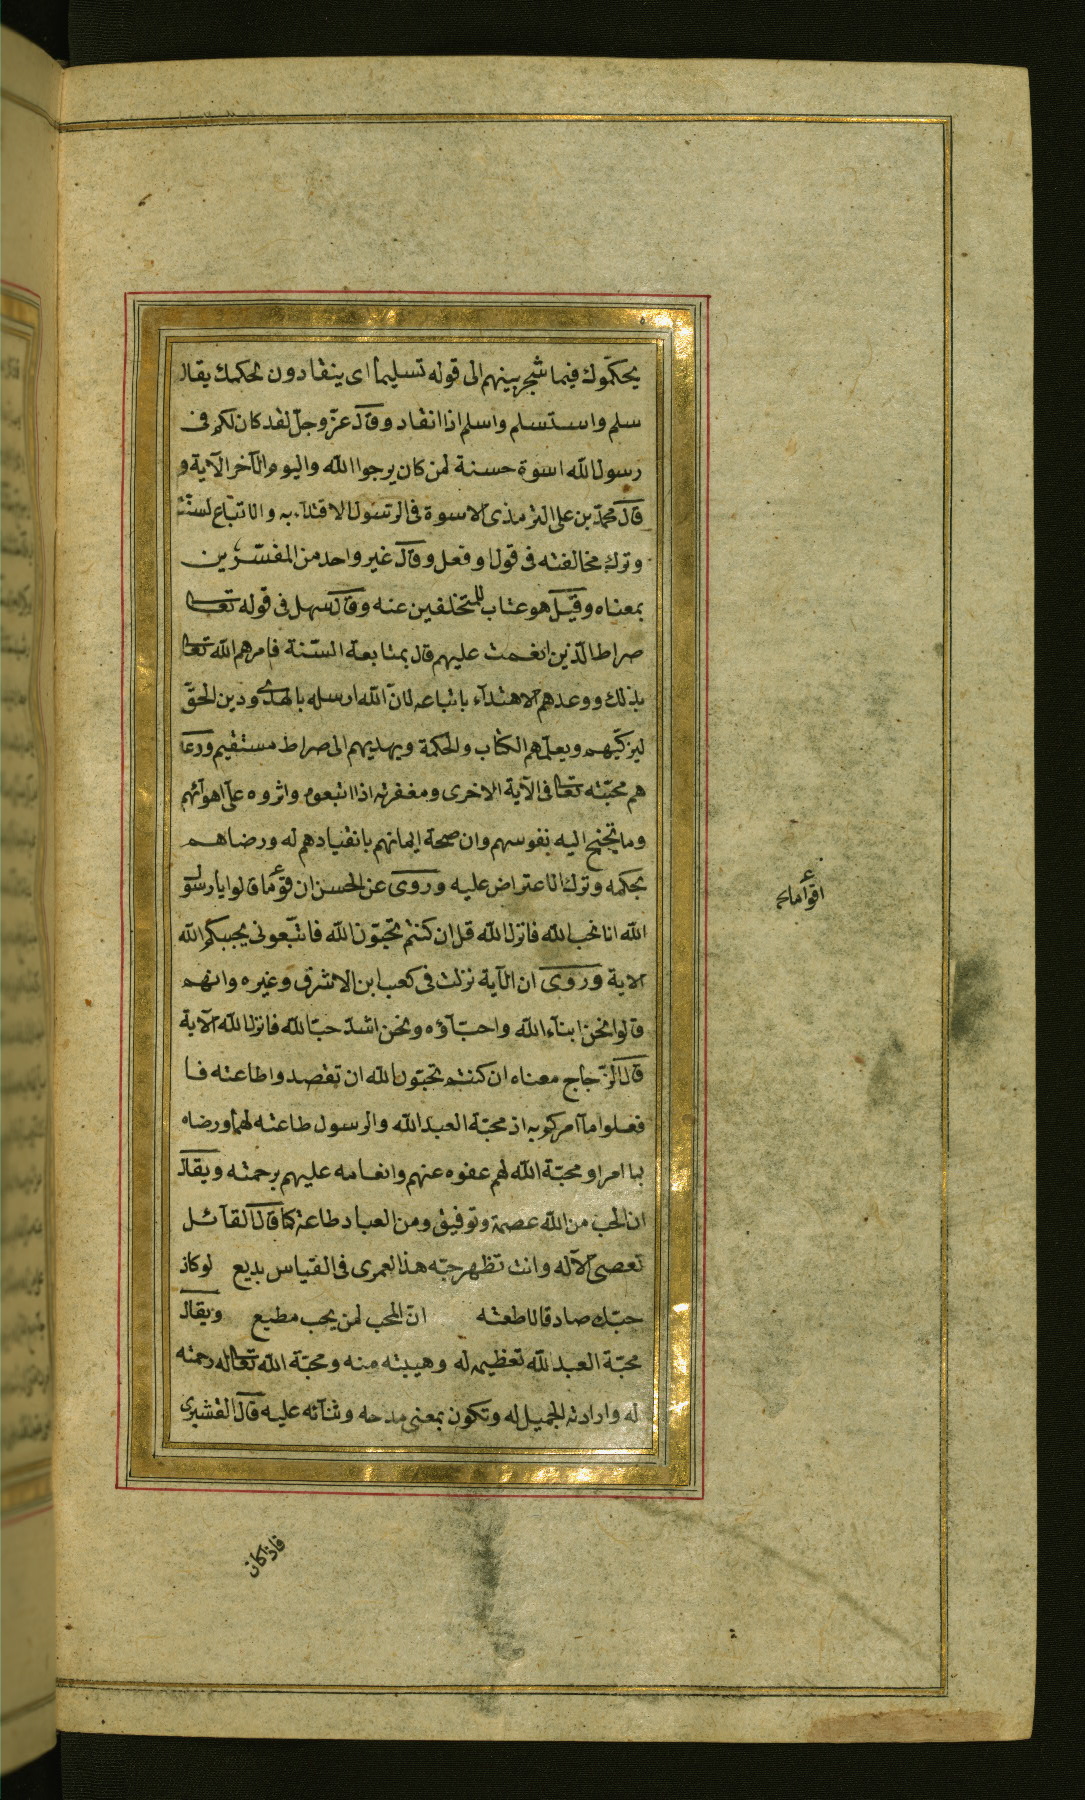 يحكّموك فيما شجر بينهم الى قوله تسليما اى ينقادون لحكمك يقال
سلم واستسلم واسلم اذا انقاد وقال عزّ وجلّ لقد كان لكم فى
رسول الله اسوة حسنة لمن كان يرجوا الله واليوم الآخر الآية و
قال محمّد بن على الترمذى الاسوة فى الرّسول الاقتدآء به والاتّباع لسنّته
وترك مخالفته فى قول او فعل وقال غير واحد من المفسّرين
بمعناه وقيل هو عتاب للمتخلفين عنه وقال سهل فى قوله تعالى
صراط الّذين انعمت عليهم قال بمتابعة السّنة فامرهم الله تعالى
بذلك ووعدهم الاهتدآء باتباعه لانّ الله ارسله بالهدى ودين الحقّ
ليزكّيهم ويعلّمهم الكتاب والحكمة ويهديهم الى صراط مستقيم ووعد
هم محبّته تعالى فى الآية الاخرى ومغفرته اذا اتبعوه واثروه على اهوآئهم
وما تجنح اليه نفوسهم وان صحة ايمانهم بانقيادهم له ورضاهم
بحكمه وترك الاعتراض عليه وروى عن الحسن ان قوما قالوا يا رسول
الله انا نحب الله فانزل الله قل ان كنتم تحبّون الله فاتّبعونى يحببكم الله
الاية وروى ان الآية نزلت فى كعب ابن الاشرف وغيره وانهم
قالوا نحن ابناء الله واحبّآؤه ونحن اشدّ حبّا لله فانزل الله الآية
قال الزّجاج معناه ان كنتم تحبّون الله ان تقصدوا طاعته فا
فعلوا ما آمركم به اذ محبّة العبد الله والرسول طاعته لهما ورضاه
بما امرا ومحبّة الله لهم عفوه عنهم وانعامه عليهم برحمته ويقال
ان الحب من الله عصمة وتوفيق ومن العباد طاعة كما قال القآئل
تعصى الآله وانت تظهر حبّه هذا لعمرى فى القياس بديع لو كان
حبّك صادقا لاطعته انّ المحب لمن يحب مطيع ويقال
محبّة العبد لله تعظيمه له وهيبته منه ومحبّة الله تعالى له رحمته
له وارادته الجميل له وتكون بمعنى مدحه وثنآئه عليه قال القشيرى
فاذا كان